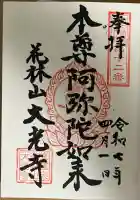 奉拝
本尊阿弥陀如来
花林山大光寺
令和七年
四月一日